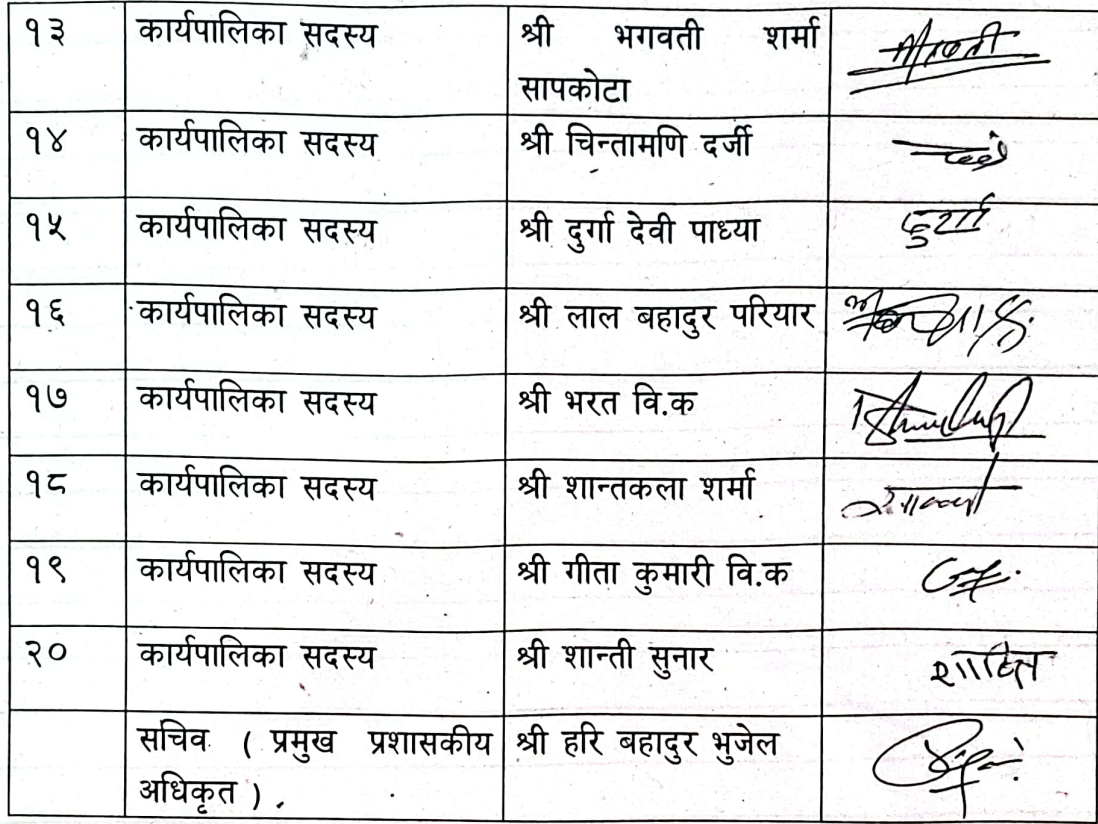 १३ कार्यपालिका सदस्य श्री भगवती शर्मा
सापकोटा
१४ कार्यपालिका सदस्य श्री चिन्तामणि दर्जी
१५ कार्यपालिका सदस्य श्री दुर्गा देवी पाध्या दुर्गा
१६ कार्यपालिका सदस्य श्री लाल बहादुर परियार
१७ कार्यपालिका सदस्य श्री भरत वि.क
१८ कार्यपालिका सदस्य श्री शान्तकला शर्मा
१९ कार्यपालिका सदस्य श्री गीता कुमारी वि.क
२० कार्यपालिका सदस्य श्री शान्ती सुनार शान्ति
सचिव ( प्रमुख प्रशासकीय श्री हरि बहादुर भुजेल
अधिकृत )